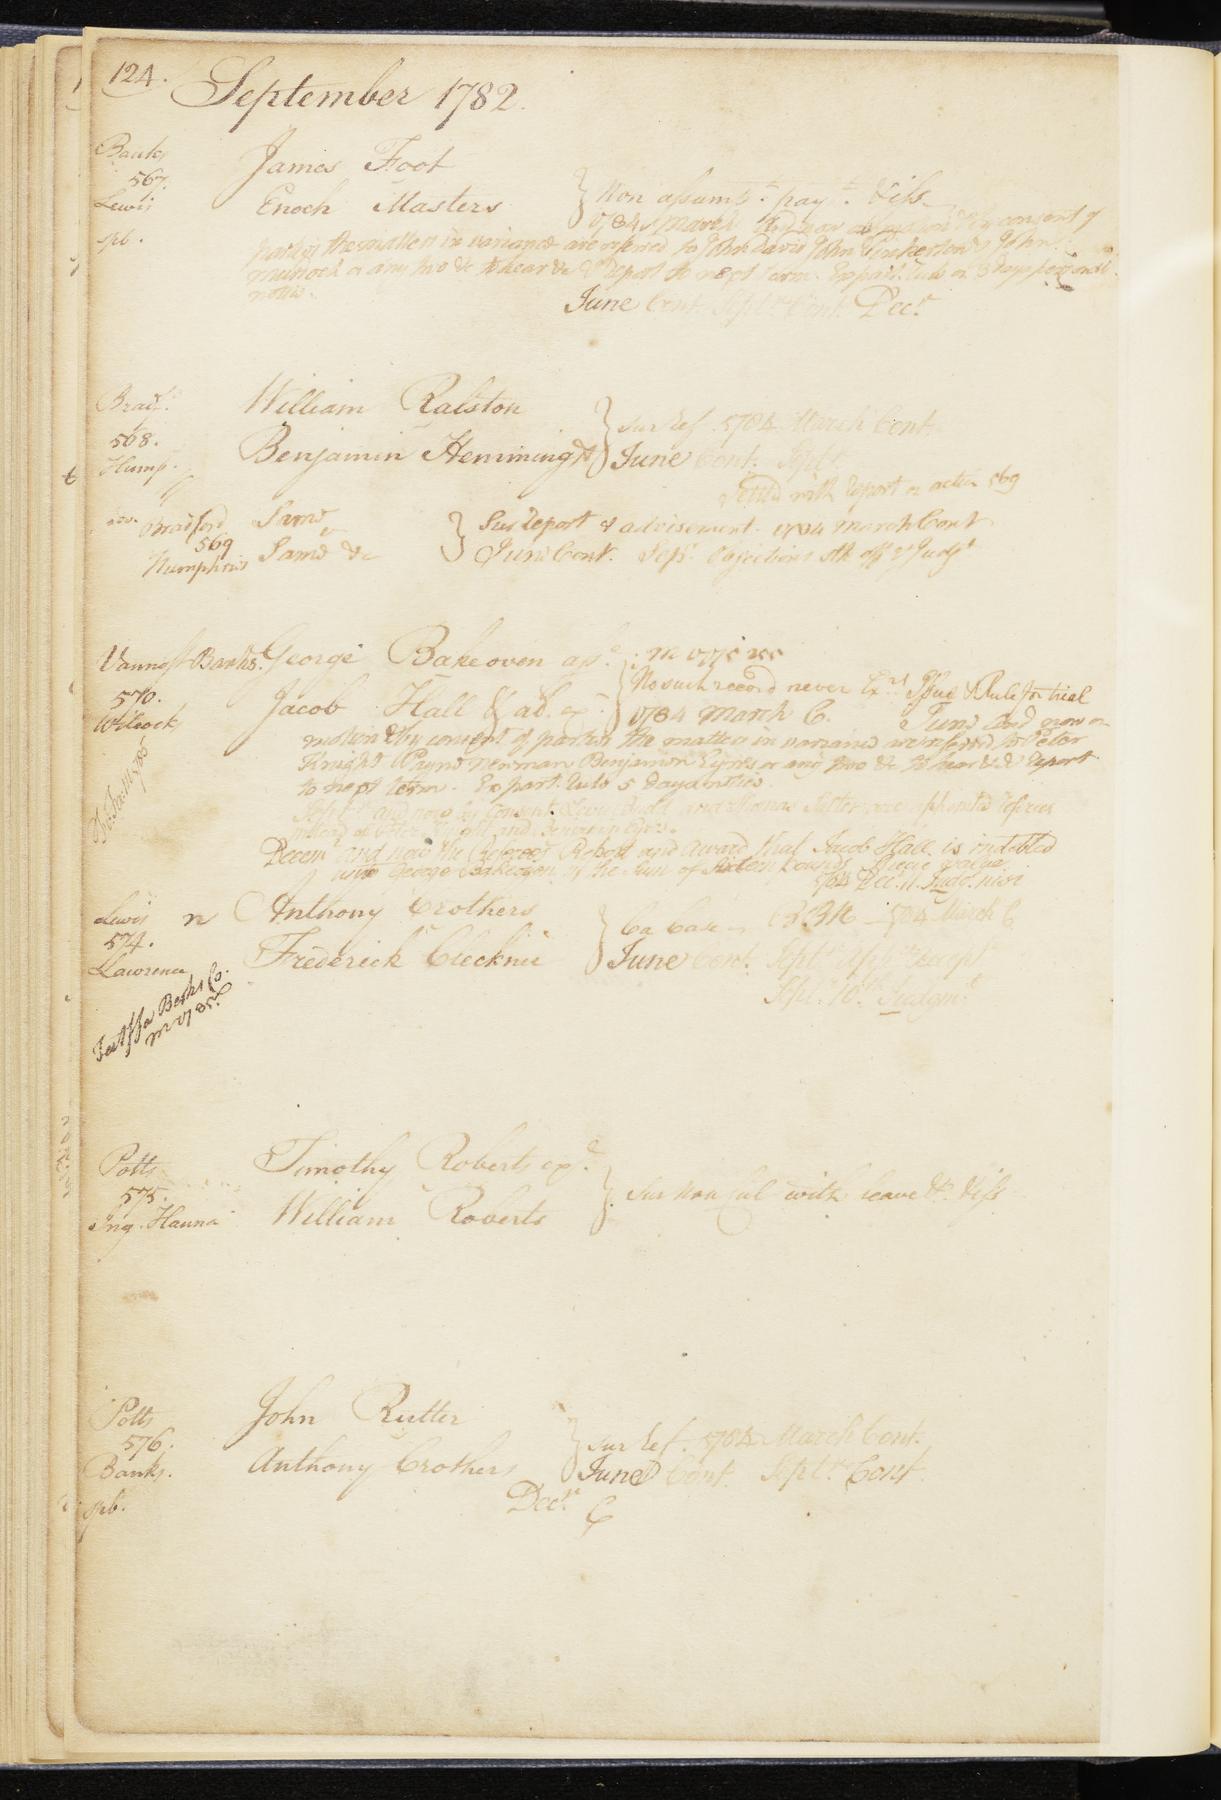 124.
September 1782.
Banks
567.
Lewis
spb.
James Foot
Enoch Masters
Non assumpt. paymt. & iss.
1784 March And now on motion & by consent of
parties the matters in variance are referred to John Davis John Pinkerton & John
or any two &c to hear &c & Report to next term. Expart. Rule on 5 days
notice.
June Cont. Septr. Cont. Decr.
Bradd.
568.
Hump.
William Ralston
Benjamin Hemmings
sur Ref. 1784 March Cont.
June Cont. Septr.
Settled with Report on action 569
Bradford
569
Humphries
Same
v
Same &c
Sur Report & advisement. 1784 March Cont
June Cont. Sepr. Objections stk off & Judgt
Vannost Banks.
570.
Wilcock
George Bakeoven ape.
Jacob Hall & al. ex
M 1775
No such record never Exrs. Issue & Rule for trial
1784 March C. June And now on
motion & by consent of parties the matters in variance are referred to Peter
Knight Wayne Newman Benjamin Eyres or any two &c to hear &c & Report
to next term. Expart. Rule 5 days notice.
Septr. and now by Consent Levi Budd and Thomas are appointed Referees
instead of Peter Knight and Benjamin Eyres.
Decemr. and now the Referees Report and Award that Jacob Hall is indebted
unto George Bakeoven in the Sum of Sixteen pounds Specie value
1784 Decr. 11. Judgt. nisi
Lewis n
574.
Lawrence
Testffa Berks Co.
Anthony Crothers
Frederick Cleckner
Ca Case 1784 March C
June Cont. Septr.
Septr. 10th. Judgmt.
Potts
575.
Ing. Hanna
Timothy Roberts exe.
William Roberts
Sur Non Cul with leave &c. & iss
Potts
576.
Banks.
spb.
John Rutter
Anthony Crothers
sur Ref. 1784 March Cont.
June Cont. Septr. Cont.
Decr. C